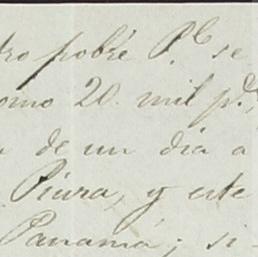 tro pobre P.e se
como 20. mil p.s,
a de un dia a
Piura, y este
Panamá; si-